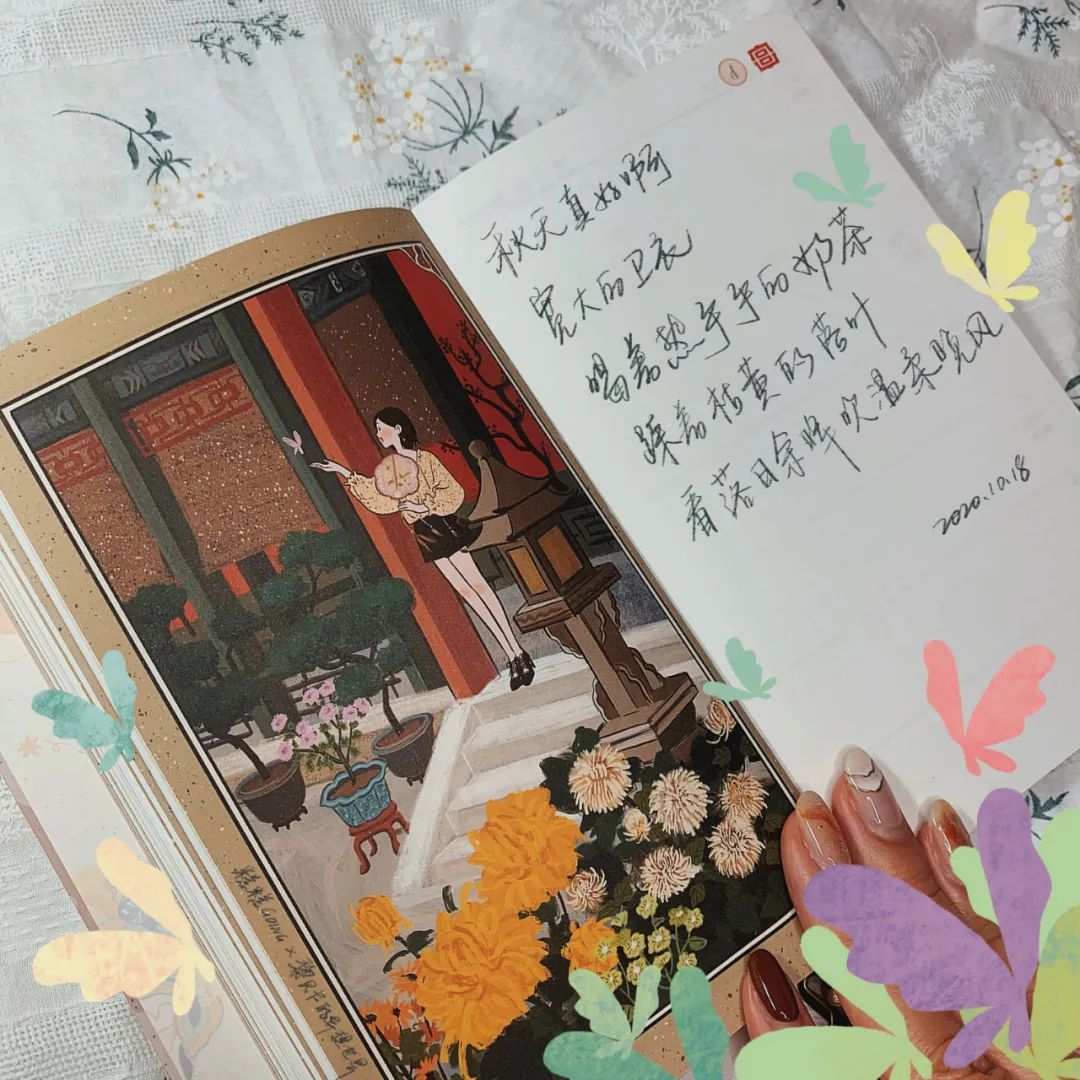 秋天真好啊
宽大的卫衣
喝着热乎乎的奶茶
踩着枯黄的落叶
看落日余晖吹温柔晚风
2020.10.18